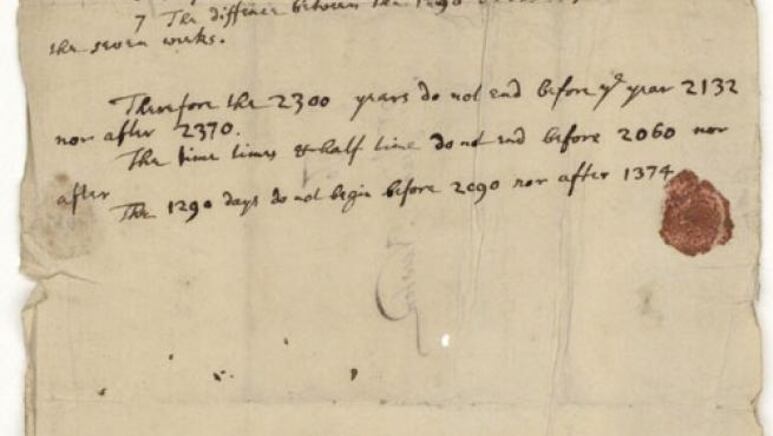 7 The difference between the 1290
the seven weeks.
Therefore the 2300 years do not end before yͤ year 2132
nor after 2370.
The time times & half time do not end before 2060 nor
after
The 1290 days do not begin before 2090 nor after 1374